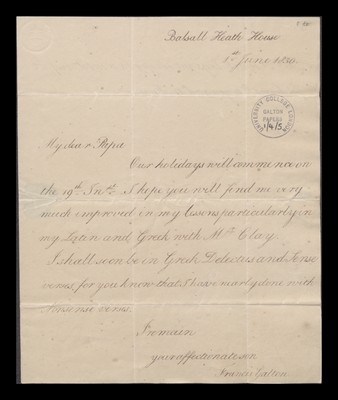 Balsall Heath House
1st June 1830.
UNIVERSITY COLLEGE LONDON
GALTON
PAPERS
My dear Papa
Our holidays will commence on
the 19th Inst. I hope you will find me very
much improved in my lesons particularly in
my Latin and Greek with Mr Clay.
I shall soon be in Greek Delectus and Sense
verses, for you know that I have nearly done with
Nonsense verses.
I remain
your affectionate son
Francis Galton